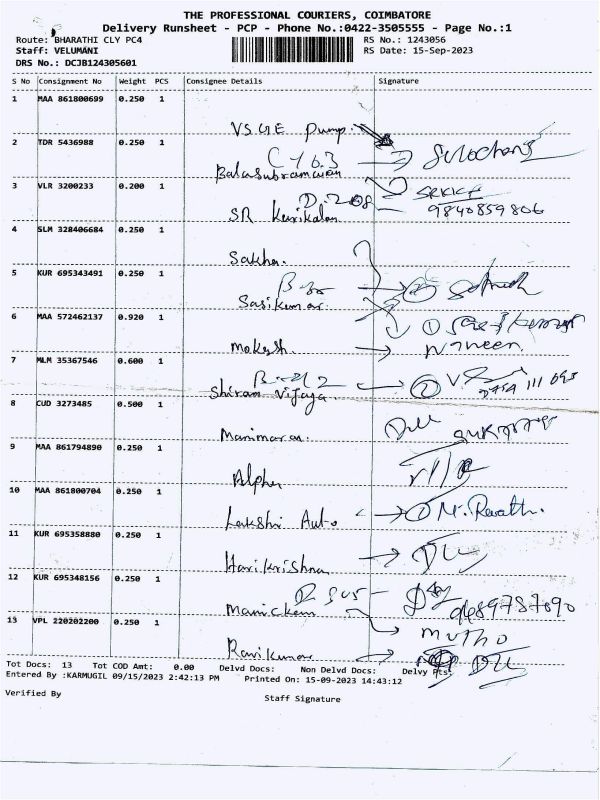 THE PROFESSIONAL COURIERS, COIMBATORE
Delivery Runsheet - PCP - Phone No.:0422-3505555 - Page No.:1
Route: BHARATHI CLY PC4 RS No.: 1243056
Staff: VELUMANI RS Date: 15-Sep-2023
DRS No.: DCJB124305601
S No Consignment No Weight PCS Consignee Details Signature
1 MAA 861800699 0.250 1
VSGE Pump.
2 TDR 5436988 0.250 1
C 163 Sulochana
Balasubramanian
3 VLR 3200233 0.200 1
D.208 SRKKF
SR Karikalan 9840859806
4 SLM 328406684 0.250 1
Sakha.
5 KUR 695343491 0.250 1
Sasikumar.
6 MAA 572462137 0.920 1
Mokesh. Naneen.
7 MLM 35367546 0.600 1
B-212 2
Shriram Vijaya
8 CUD 3273485 0.500 1
Manimaran.
9 MAA 861794890 0.250 1
Alpha
10 MAA 861800704 0.250 1
Lakshri Auto 1 M. Revathi.
11 KUR 695358880 0.250 1
Harikrishna
12 KUR 695348156 0.250 1
D 305 9689787090
Manickam
13 VPL 220202200 0.250 1
Mutho
Ravikumar
Tot Docs: 13 Tot COD Amt: 0.00 Delvd Docs: Non Delvd Docs: Delvy Pts:
Entered By :KARMUGIL 09/15/2023 2:42:13 PM Printed On: 15-09-2023 14:43:12
Verified By Staff Signature